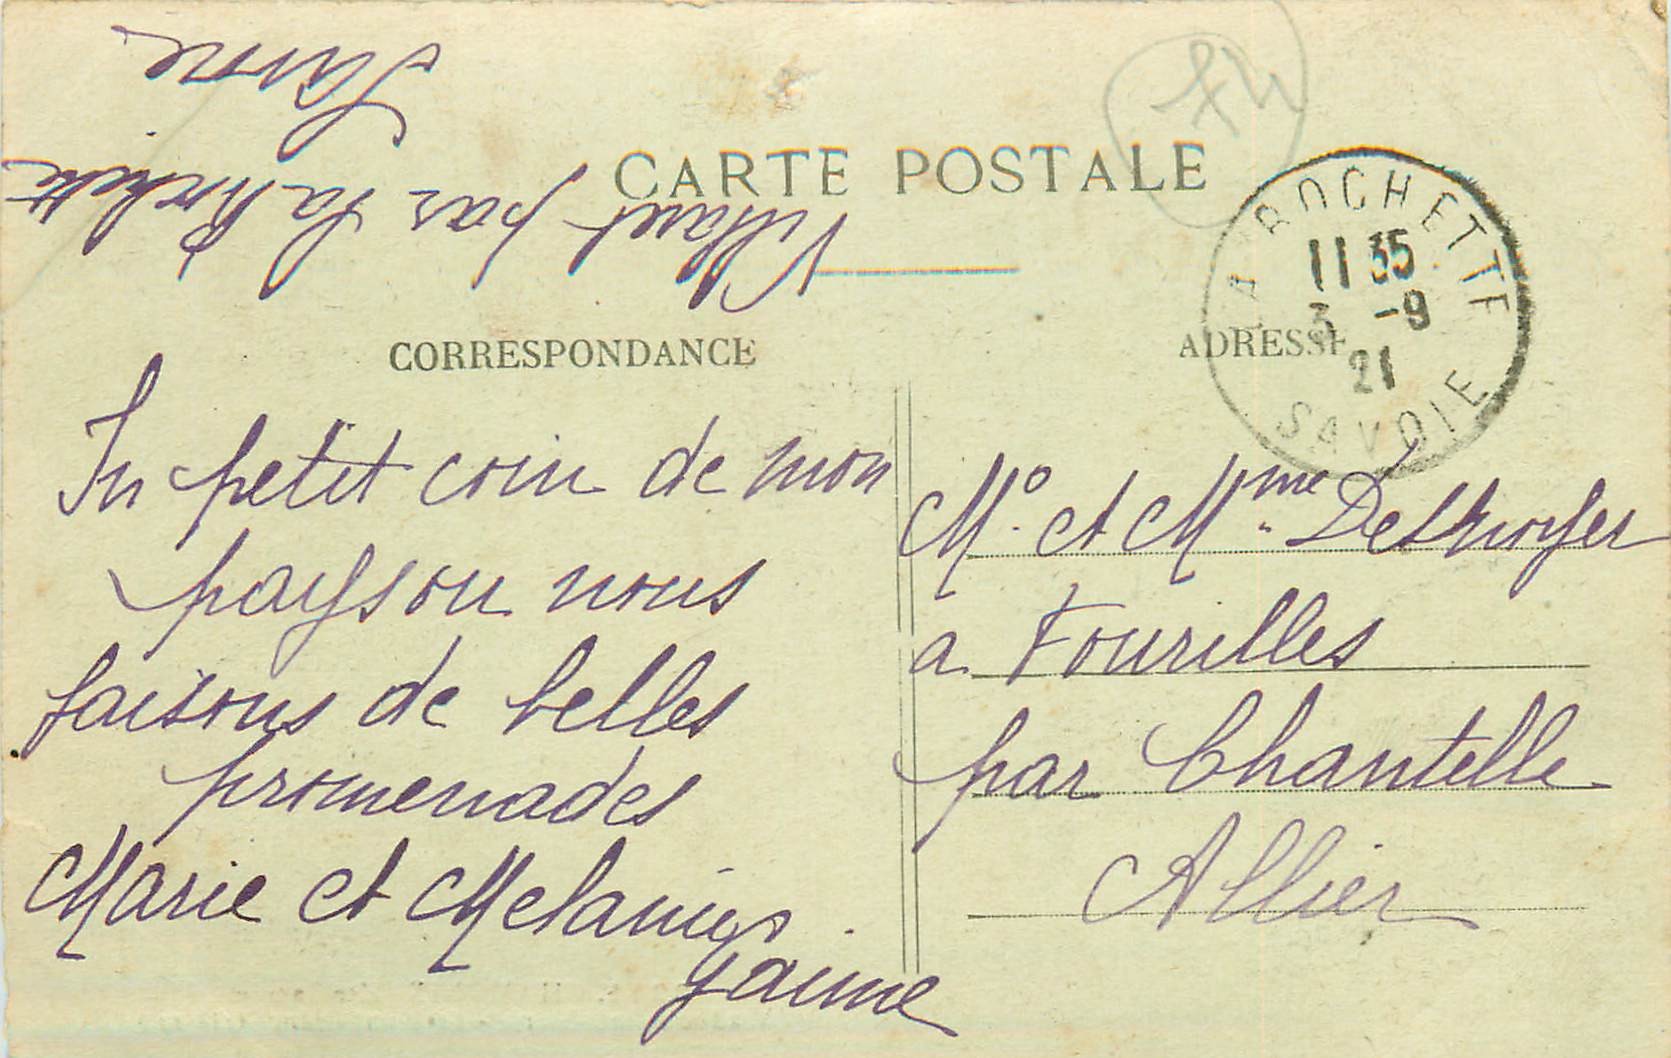 Villaret par La Rochette
Savoie
CARTE POSTALE
LA ROCHETTE
11 35
3 -9
21
SAVOIE
CORRESPONDANCE
ADRESSE
Un petit coin de mon
pays ou nous
faisons de belles
promenades
Marie et Melanie
Jaime
Mr. et Mme Desthuyer
a Fourilles
par Chantelle
Allier